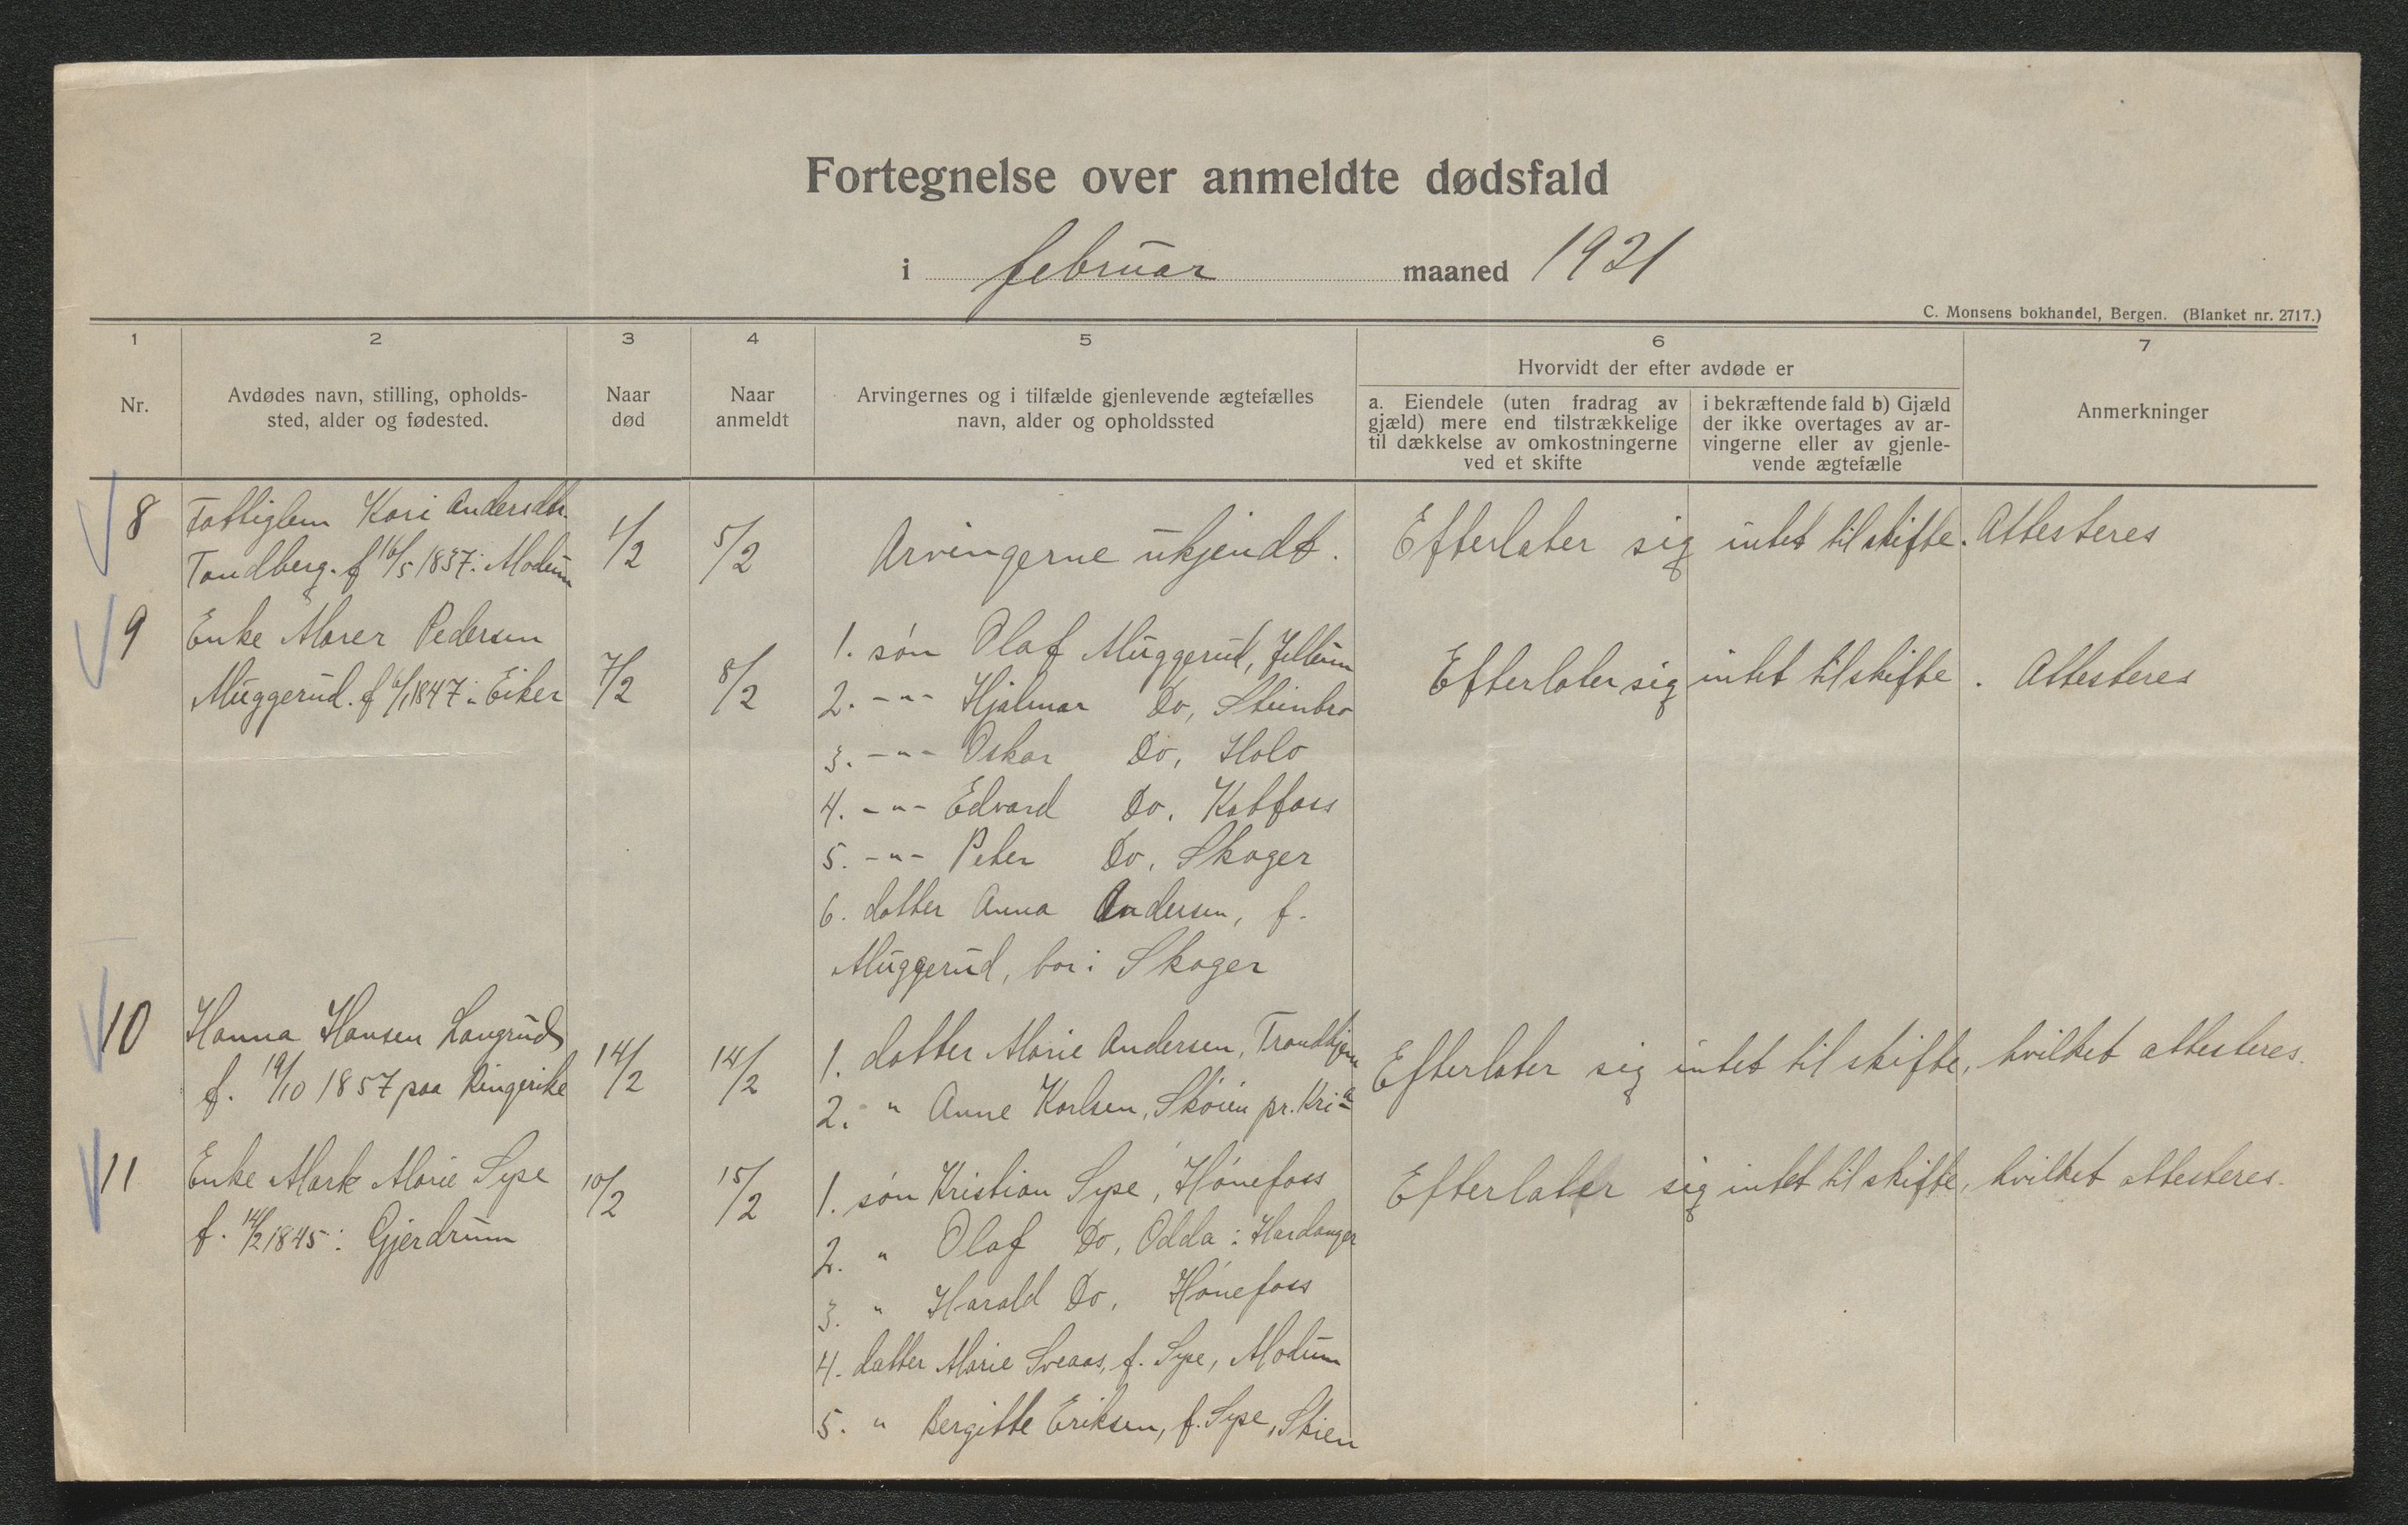 Fortegnelse over anmeldte dødsfald
i februar maaned 1921
C. Monsens bokhandel, Bergen. (Blanket nr. 2717.)
1 2 3 4 5 6 7
Nr.
Avdødes navn, stilling, opholds-
sted, alder og fødested.
Naar
død
Naar
anmeldt
Arvingernes og i tilfælde gjenlevende ægtefælles
navn, alder og opholdssted
Hvorvidt der efter avdøde er
a. Eiendele (uten fradrag av
gjæld) mere end tilstrækkelige
til dækkelse av omkostningerne
ved et skifte
i bekræftende fald b) Gjæld
der ikke overtages av ar-
vingerne eller av gjenle-
vende ægtefælle
Anmerkninger
8 Fattiglem Kari Andersdtr.
Tandberg. f 16/5 1837 i Modum
1/2 5/2
Arvingerne ukjendt.
Efterlater sig intet til skifte. Attesteres
9 Enke Maren Pedersen
Muggerud. f 6/1 1847 i Eiker
7/2 8/2
1. søn Olaf Muggerud,
2. -"- Hjalmar Do, Steinbro
3. -"- Oskar Do, Holo
4. -"- Edvard Do, Katfoss
5. -"- Peter Do, Skoger
6. datter Anna Andersen, f.
Muggerud, bor i Skoger
Efterlater sig intet til skifte. Attesteres
10 Hanna Hansen Langrud
f. 19/10 1857 paa Ringerike
14/2 14/2
1. datter Marie Andersen, Trondhjem
2. " Anne Karlsen, Skøien pr. Kria
Efterlater sig intet til skifte, hvilket attesteres.
11 Enke Mark Marie Sype
f. 14/2 1845 i Gjerdrum
10/2 15/2
1. søn Kristian Sype, Hønefoss
2. " Olaf Do, Odda i Hardanger
3. " Harald Do, Hønefoss
4. datter Marie Sveaas, f. Sype, Modum
5. " Bergitte Eriksen, f. Sype, Skien
Efterlater sig intet til skifte, hvilket attesteres.